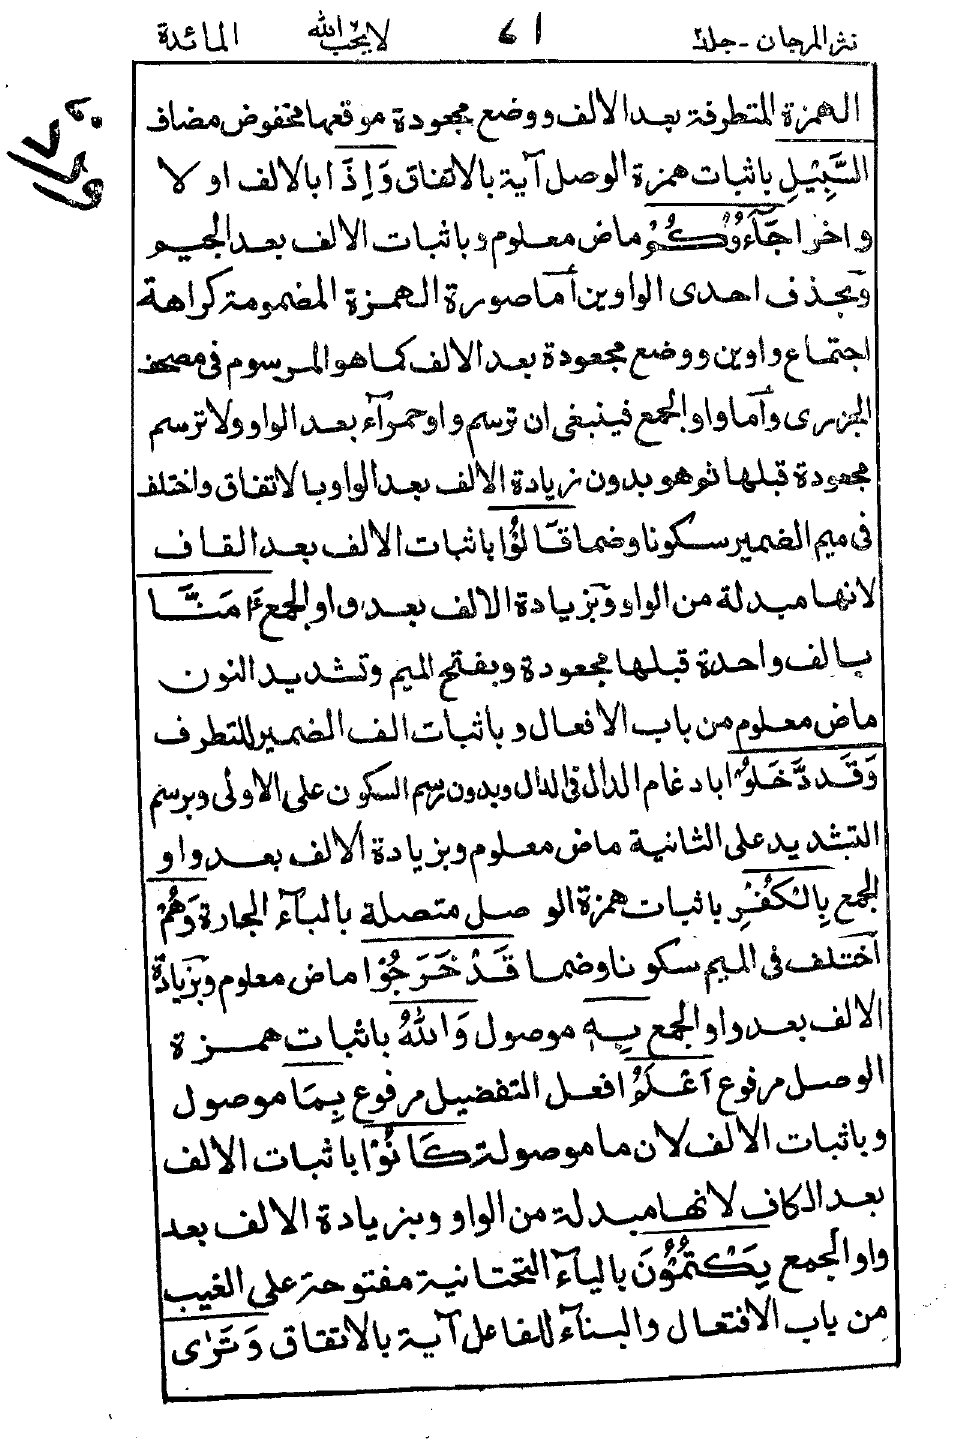 نثر المرجان - جلد٢ ٦١ لا يحب الله المائدة
الهمزة المتطرفة بعد الالف ووضع مجعودة موقعها مخفوض مضاف
السَّبِيْلِ باثبات همزة الوصل آية بالاتفاق وَاِذَا بالالف اولا
واخرا جَآءُوْكُمْ ماض معلوم وباثبات الالف بعد الجيم
وبحذف احدى الواوين أما صورة الهمزة المضمومة كراهة
اجتماع واوين ووضع مجعودة بعد الالف كما هو المرسوم فى مصحف
الجزرى وأما واو الجمع فينبغى ان ترسم واو حمرآء بعد الواو ولا ترسم
مجعودة قبلها ثم هو بدون زيادة الالف بعد الواو بالاتفاق واختلف
فى ميم الضمير سكونا وضما قَالُوْٓا باثبات الالف بعد القاف
لانها مبدلة من الواو وبزيادة الالف بعد واو الجمع ءَامَنَّا
بالف واحدة قبلها مجعودة وبفتح الميم وتشديد النون
ماض معلوم من باب الافعال وباثبات الف الضمير للتطرف
وَقَد دَّخَلُوْا بادغام الدال فى الدال وبدون رسم السكون على الاولى وبرسم
التشديد على الثانية ماض معلوم وبزيادة الالف بعد واو
الجمع بِالْكُفْرِ باثبات همزة الوصل متصلة بالبآء الجارة وَهُمْ
اختلف فى الميم سكونا وضما قَدْ خَرَجُوْا ماض معلوم وبزيادة
الالف بعد واو الجمع بِهٖ موصول وَاللّٰهُ باثبات همزة
الوصل مرفوع اَعْلَمُ افعل التفضيل مرفوع بِمَا موصول
وباثبات الالف لان ما موصولة كَانُوْا باثبات الالف
بعد الكاف لانها مبدلة من الواو وبزيادة الالف بعد
واو الجمع يَكْتُمُوْنَ باليآء التحتانية مفتوحة على الغيب
من باب الافتعال والبنآء للفاعل آية بالاتفاق وَتَرٰى